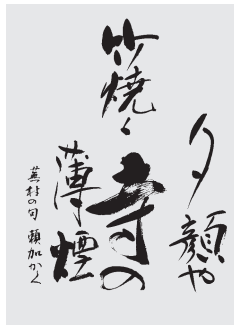 夕顔や
竹焼く
寺の
薄煙
蕪村の句 頼加かく